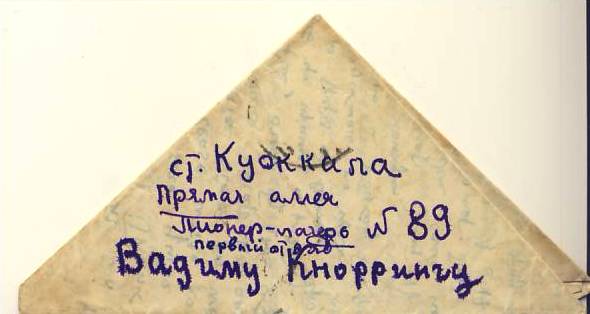 ст. Куоккала
Прямая аллея
Пионер-лагерь N 89
первый отряд
Вадиму Кноррингу